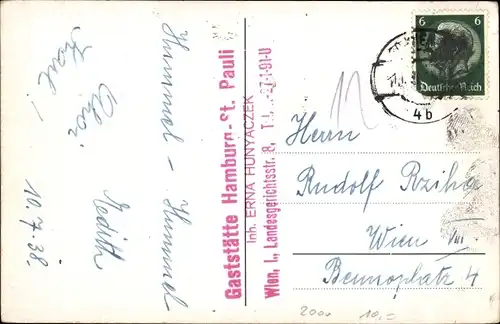 Hummel - Hummel
10.7.38.
Gaststätte Hamburg-St. Pauli
Inh. ERNA HUNYACZEK
Wien, I., Landesgerichtsstr. 8,
6 6
Deutsches Reich
4b
12
Herrn
Rudolf Rziha
Wien VIII
Bennoplatz 4
200a 10,-